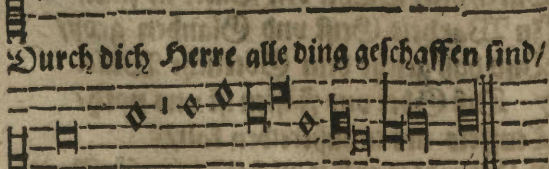 Durch dich Herre alle ding geschaffen sind/